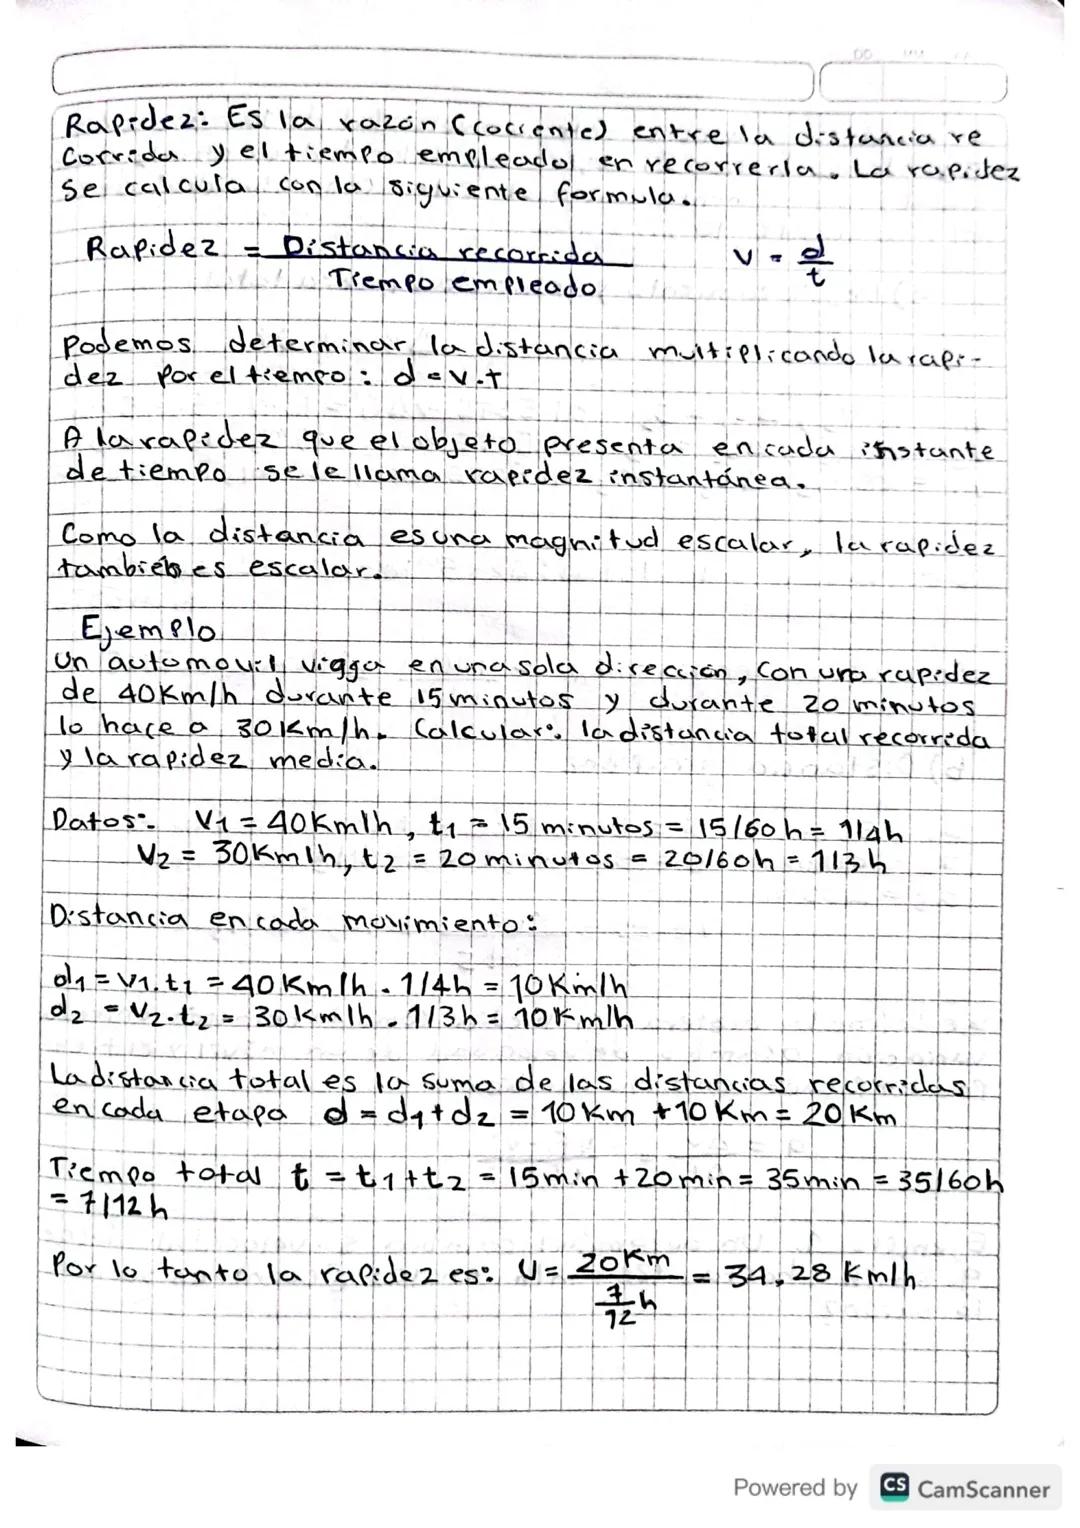 Rapidez: Es la razón (cociente) entre la distancia re
corrida y el tiempo empleado en recorrerla. La rapidez
se calcula con la siguiente formula.
Rapidez = Distancia recorrida / Tiempo empleado v = d/t
Podemos determinar la distancia multiplicando la rapi-
dez por el tiempo: d = v.t
A la rapidez que el objeto presenta en cada instante
de tiempo se le llama rapidez instantánea.
Como la distancia es una magnitud escalar, la rapidez
tambien es escalar.
Ejemplo
Un automovil viaja en una sola dirección, con una rapidez
de 40 Km/h durante 15 minutos y durante 20 minutos
lo hace a 30 Km/h. Calcular: la distancia total recorrida
y la rapidez media.
Datos: V1 = 40 Km/h, t1 = 15 minutos = 15/60 h = 1/4 h
V2 = 30 Km/h, t2 = 20 minutos = 20/60 h = 1/3 h
Distancia en cada movimiento:
d1 = V1.t1 = 40 Km/h . 1/4h = 10 Km/h
d2 = V2.t2 = 30 Km/h . 1/3h = 10 Km/h
La distancia total es la suma de las distancias recorridas
en cada etapa d = d1 + d2 = 10 Km + 10 Km = 20 Km
Tiempo total t = t1 + t2 = 15 min + 20 min = 35 min = 35/60 h
= 7/12 h
Por lo tanto la rapidez es: V = 20 Km / 7/12 h = 34,28 Km/h
Powered by CS CamScanner